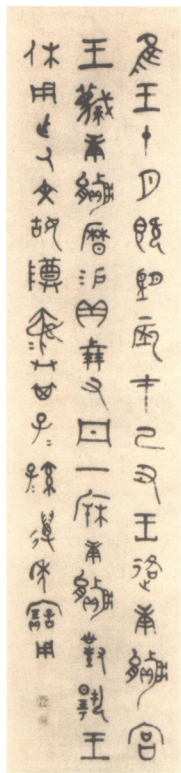 隹王十月既望辰才己丑王各庚嬴宮
王蔑庚嬴曆易貝十朋又丹一庚嬴對揚王
休用乍氒文姑尊彝子子孫孫永寶用